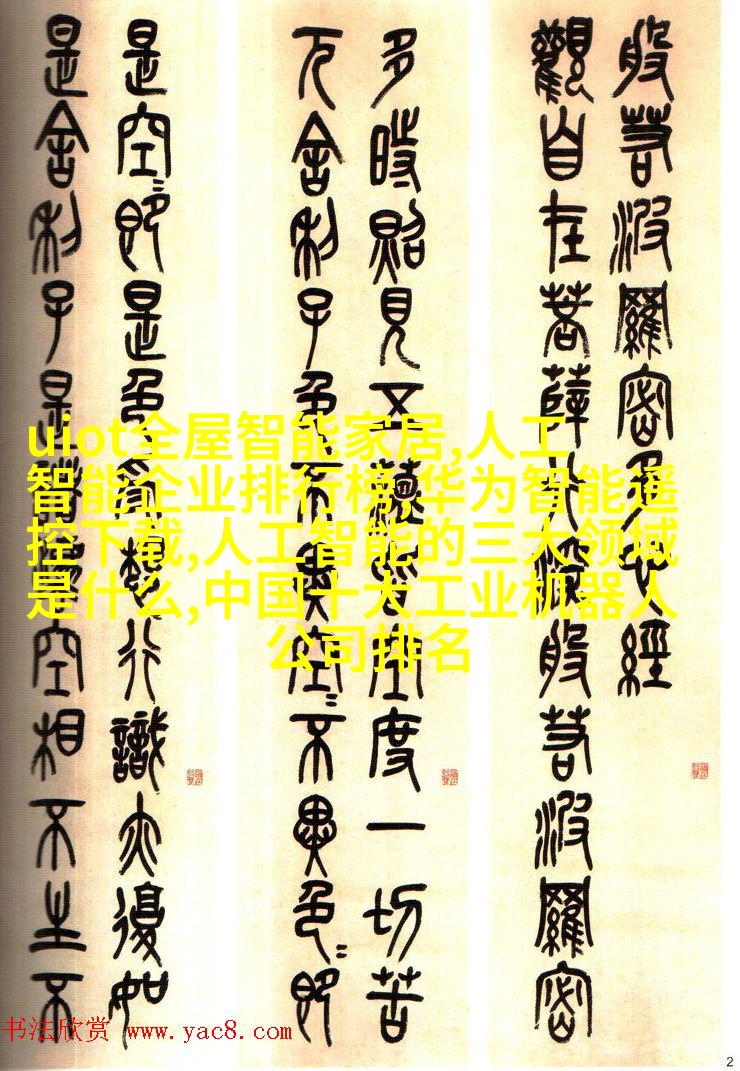 般若波羅密多心經
觀自在菩薩行深般若波羅密
多時照見五蘊皆空度一切苦
厄舍利子色不異空=不異色=即
是空=即是色受想行識亦復如
是舍利子是諸法空相不生不
uiot全屋智能家居,人工
智能企业排行榜,华为智能遥
控下载,人工智能的三大领域
是什么,中国十大工业机器人
公司排名
书法欣赏 www.yac8.com
2